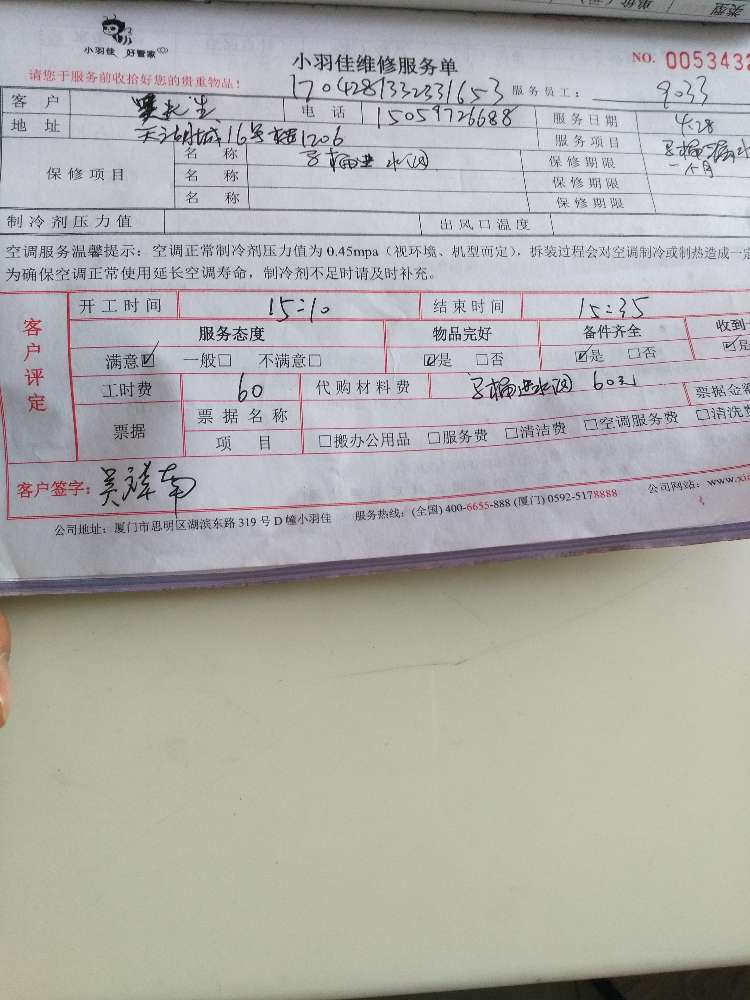 类型
小羽佳 好管家
小羽佳维修服务单
NO. 0053432
请您于服务前收拾好您的贵重物品！
170428133233 1653 服务员工： 9033
客 户 电 话 15059726688 服务日期 4.28
地 址 天湖城16号楼1206 服务项目
保修项目 名 称 水阀 保修期限 一个月
名 称 保修期限
名 称 保修期限
制冷剂压力值 出风口温度
空调服务温馨提示：空调正常制冷剂压力值为 0.45mpa（视环境、机型而定），拆装过程会对空调制冷或制热造成一定
为确保空调正常使用延长空调寿命，制冷剂不足时请及时补充。
客户评定
开工时间 15:10 结束时间 15:35
服务态度 物品完好 备件齐全 收到一
满意☑ 一般□ 不满意□ ☑是 □否 ☑是 □否 ☑是
工时费 60 代购材料费 进水阀 60元 票据金额
票据 票据名称
项 目 □搬办公用品 □服务费 □清洁费 □空调服务费 □清洗费
客户签字：
公司地址：厦门市思明区湖滨东路 319 号 D 幢小羽佳 服务热线：(全国) 400-6655-888 (厦门) 0592-5178888 公司网站：www.xia